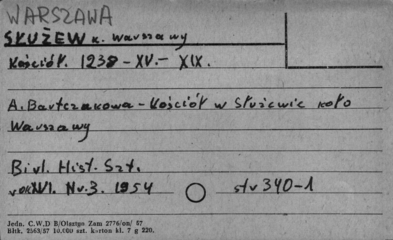 WARSZAWA
SŁUŻEW k. Warszawy
Kościół. 1238 - XV.- XIX.
A. Bartczakowa - Kościół w Służewie koło
Warszawy
Biul. Hist. Szt.
rok XVI. Nr. 3. 1954 str 340-1
Jedn. C.W.D B/Olsztyn Zam 2776/on/ 57
Bltk. 2563/57 10.000 szt. karton kl. 7 g 220.